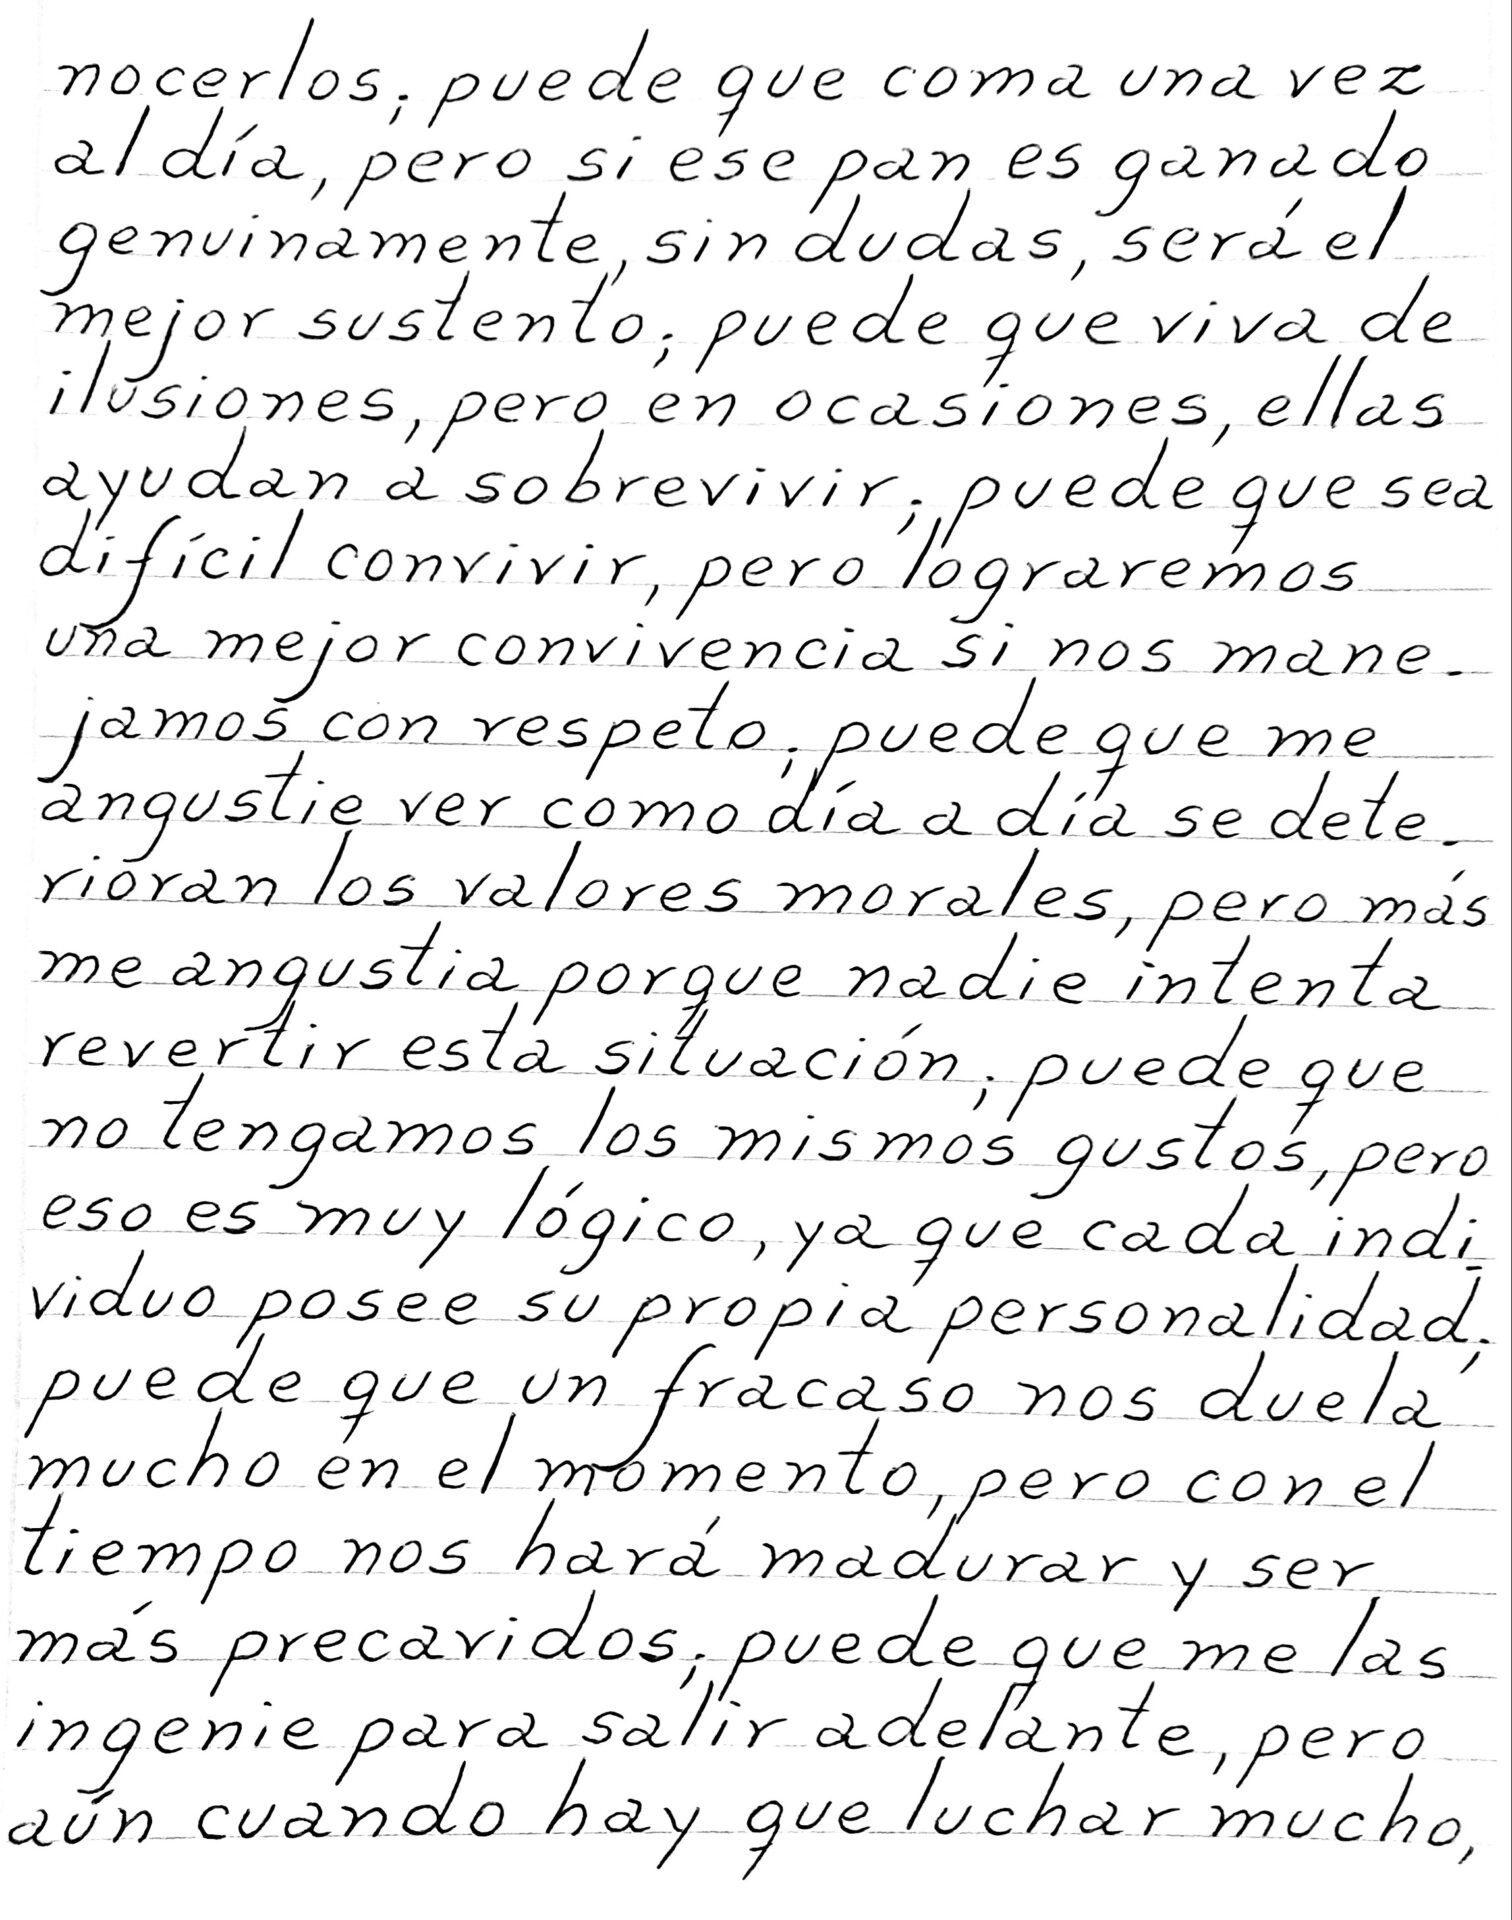 nocerlos; puede que coma una vez
al día, pero si ese pan es ganado
genuinamente, sin dudas, será el
mejor sustento; puede que viva de
ilusiones, pero en ocasiones, ellas
ayudan a sobrevivir; puede que sea
difícil convivir, pero lograremos
una mejor convivencia si nos mane-
jamos con respeto; puede que me
angustie ver como día a día se dete-
rioran los valores morales, pero más
me angustia porque nadie intenta
revertir esta situación; puede que
no tengamos los mismos gustos, pero
eso es muy lógico, ya que cada indi-
viduo posee su propia personalidad;
puede que un fracaso nos duela
mucho en el momento, pero con el
tiempo nos hará madurar y ser
más precavidos; puede que me las
ingenie para salir adelante, pero
aún cuando hay que luchar mucho,